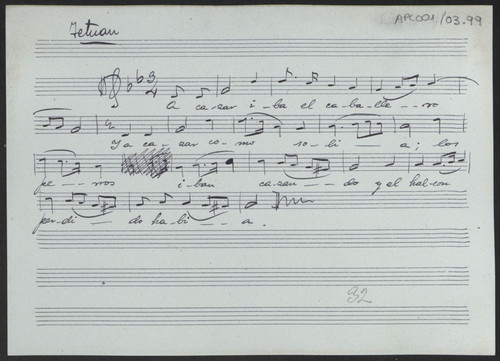 Tetuan
APC001/03.99
A ca-zar i-ba el ca-ba-lle--ro
y a ca-zar co-mo so-li--a; los
pe--rros i-ban can-san--do y el hal-con
per-di--do ha-bi--a.
32